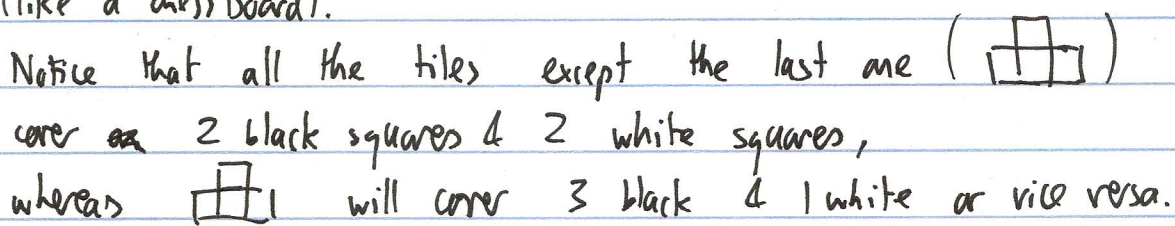 (like a chessboard).
Notice that all the tiles except the last one ( )
cover 2 black squares & 2 white squares,
whereas will cover 3 black & 1 white or vice versa.